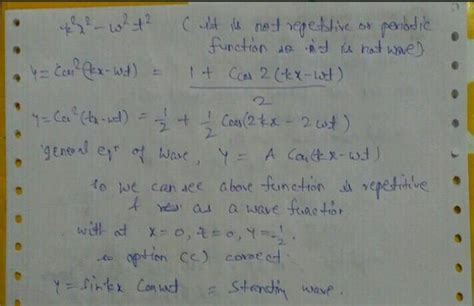 k²x² - ω²t² ( it is not repetitive or periodic
function so it is not wave)
y = Cos²(kx-ωt) = 1 + Cos 2(kx-ωt) / 2
y = Cos²(kx-ωt) = 1/2 + 1/2 Cos(2kx - 2ωt)
general eqⁿ of wave, y = A Cos(kx-ωt)
so we can see above function is repetitive
as a wave function
with at x = 0, z = 0, y = -1/2.
so option (c) correct
y = sinkx Cosωt = Standing wave.